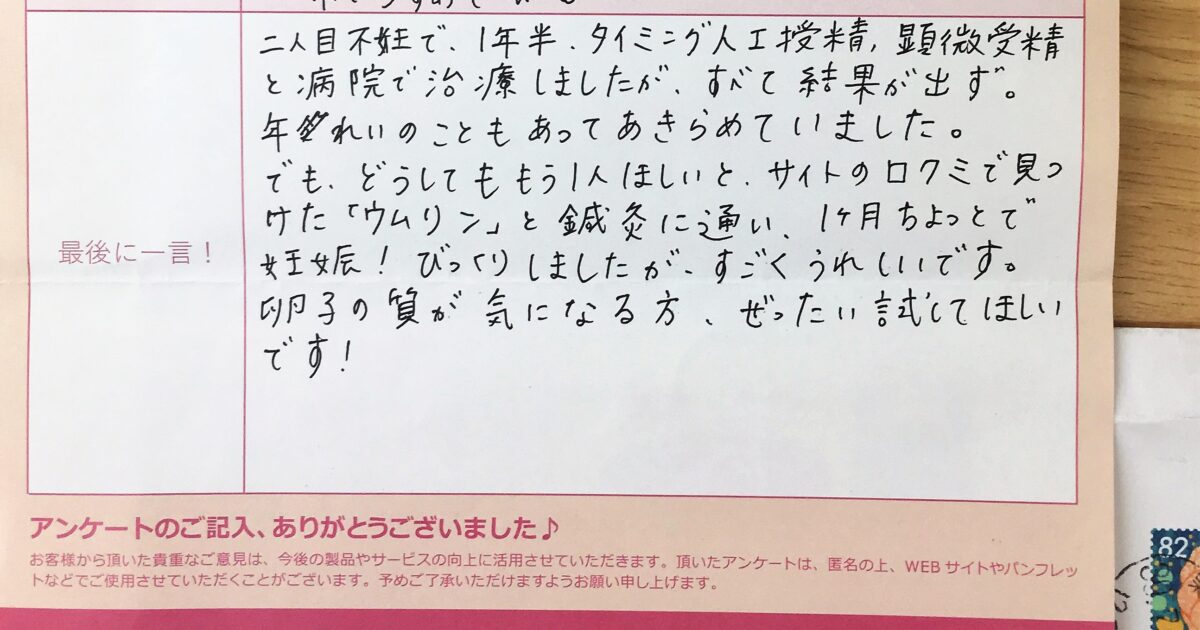 二人目不妊で、1年半、タイミング人工授精、顕微受精
と病院で治療しましたが、すべて結果が出ず。
年れいのこともあってあきらめていました。
でも、どうしてももう1人ほしいと、サイトの口クミで見つ
けた「ウムリン」と鍼灸に通い、1ヶ月ちょっとで
妊娠！びっくりしましたが、すごくうれしいです。
卵子の質が気になる方、ぜったい試してほしい
です！
最後に一言！
アンケートのご記入、ありがとうございました♪
お客様から頂いた貴重なご意見は、今後の製品やサービスの向上に活用させていただきます。頂いたアンケートは、匿名の上、WEBサイトやパンフレッ
トなどでご使用させていただくことがございます。予めご了承いただけますようお願い申し上げます。
82